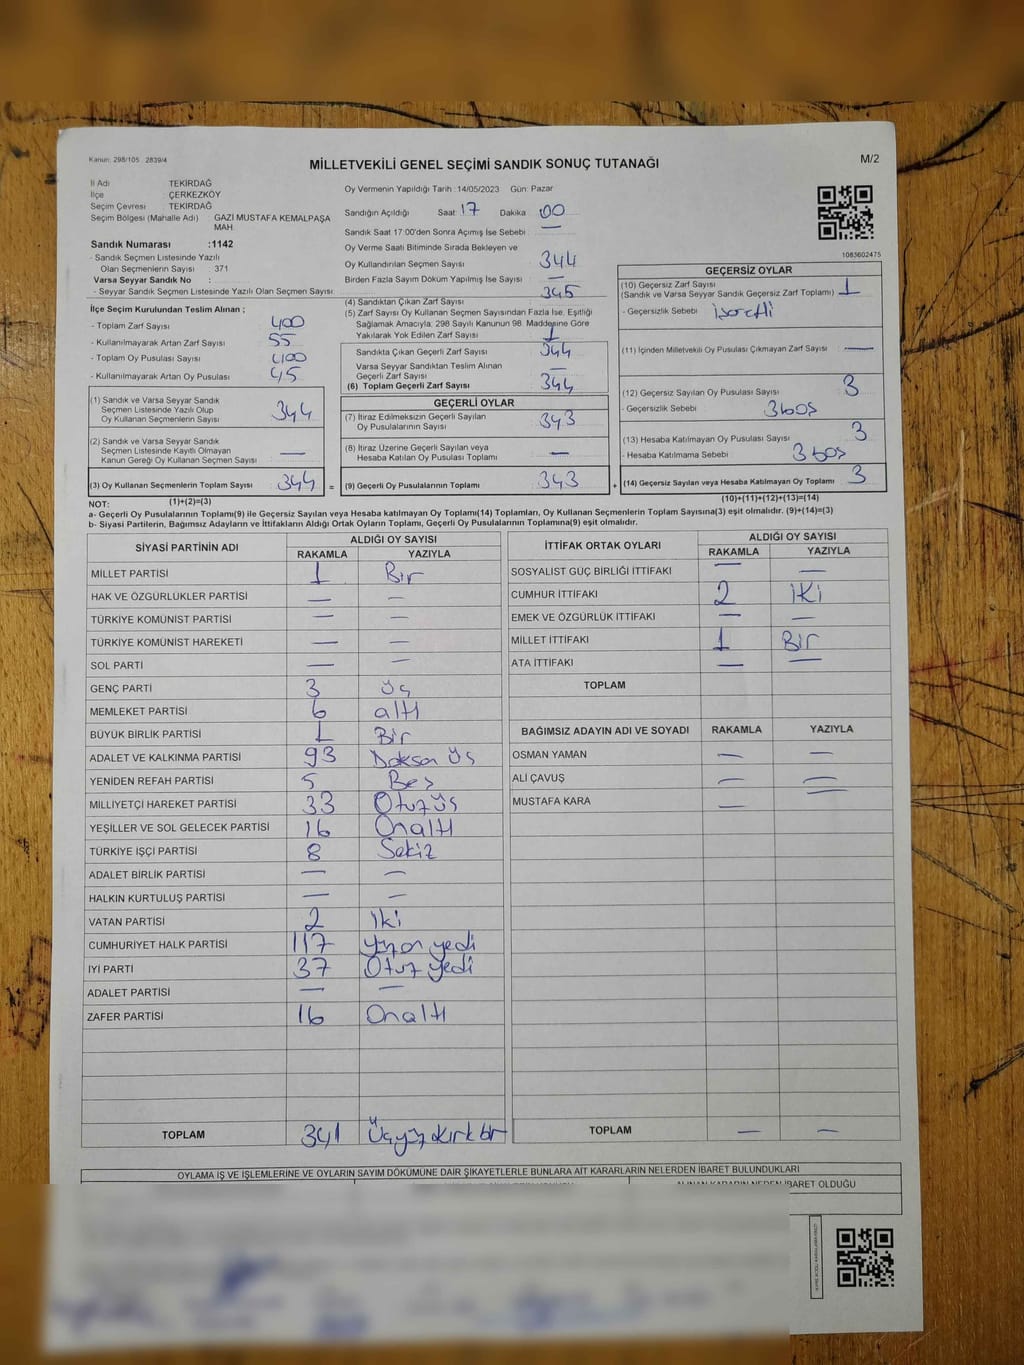 Kanun: 298/105 2839/4
MİLLETVEKİLİ GENEL SEÇİMİ SANDIK SONUÇ TUTANAĞI
M/2
İl Adı TEKİRDAĞ
İlçe ÇERKEZKÖY
Seçim Çevresi TEKİRDAĞ
Seçim Bölgesi (Mahalle Adı) GAZİ MUSTAFA KEMALPAŞA
MAH.
Sandık Numarası :1142
- Sandık Seçmen Listesinde Yazılı
Olan Seçmenlerin Sayısı : 371
Varsa Seyyar Sandık No :
- Seyyar Sandık Seçmen Listesinde Yazılı Olan Seçmen Sayısı:
İlçe Seçim Kurulundan Teslim Alınan ;
- Toplam Zarf Sayısı : 400
- Kullanılmayarak Artan Zarf Sayısı : 55
- Toplam Oy Pusulası Sayısı : 400
- Kullanılmayarak Artan Oy Pusulası : 45
(1) Sandık ve Varsa Seyyar Sandık
Seçmen Listesinde Yazılı Olup
Oy Kullanan Seçmenlerin Sayısı 344
(2) Sandık ve Varsa Seyyar Sandık
Seçmen Listesinde Kayıtlı Olmayan
Kanun Gereği Oy Kullanan Seçmen Sayısı —
(3) Oy Kullanan Seçmenlerin Toplam Sayısı 344 =
(1)+(2)=(3)
Oy Vermenin Yapıldığı Tarih :14/05/2023 Gün: Pazar
Sandığın Açıldığı Saat: 17 Dakika : 00
Sandık Saat 17:00'den Sonra Açımış İse Sebebi : —
Oy Verme Saati Bitiminde Sırada Bekleyen ve
Oy Kullandırılan Seçmen Sayısı : 344
Birden Fazla Sayım Döküm Yapılmış İse Sayısı : —
(4) Sandıktan Çıkan Zarf Sayısı : 345
(5) Zarf Sayısı Oy Kullanan Seçmen Sayısından Fazla İse, Eşitliği
Sağlamak Amacıyla; 298 Sayılı Kanunun 98. Maddesine Göre
Yakılarak Yok Edilen Zarf Sayısı : 1
Sandıkta Çıkan Geçerli Zarf Sayısı : 344
Varsa Seyyar Sandıktan Teslim Alınan
Geçerli Zarf Sayısı : —
(6) Toplam Geçerli Zarf Sayısı : 344
GEÇERLİ OYLAR
(7) İtiraz Edilmeksizin Geçerli Sayılan
Oy Pusulalarının Sayısı : 343
(8) İtiraz Üzerine Geçerli Sayılan veya
Hesaba Katılan Oy Pusulası Toplamı : —
(9) Geçerli Oy Pusulalarının Toplamı : 343 +
1083602475
GEÇERSİZ OYLAR
(10) Geçersiz Zarf Sayısı
(Sandık ve Varsa Seyyar Sandık Geçersiz Zarf Toplamı) : 1
- Geçersizlik Sebebi : İşaretli
(11) İçinden Milletvekili Oy Pusulası Çıkmayan Zarf Sayısı : —
(12) Geçersiz Sayılan Oy Pusulası Sayısı : 3
- Geçersizlik Sebebi : 3 boş
(13) Hesaba Katılmayan Oy Pusulası Sayısı : 3
- Hesaba Katılmama Sebebi : 3 boş
(14) Geçersiz Sayılan veya Hesaba Katılmayan Oy Toplamı : 3
(10)+(11)+(12)+(13)=(14)
NOT:
a- Geçerli Oy Pusulalarının Toplamı(9) ile Geçersiz Sayılan veya Hesaba katılmayan Oy Toplamı(14) Toplamları, Oy Kullanan Seçmenlerin Toplam Sayısına(3) eşit olmalıdır. (9)+(14)=(3)
b- Siyasi Partilerin, Bağımsız Adayların ve İttifakların Aldığı Ortak Oyların Toplamı, Geçerli Oy Pusulalarının Toplamına(9) eşit olmalıdır.
SİYASİ PARTİNİN ADI ALDIĞI OY SAYISI
RAKAMLA YAZIYLA
MİLLET PARTİSİ 1 Bir
HAK VE ÖZGÜRLÜKLER PARTİSİ — —
TÜRKİYE KOMÜNİST PARTİSİ — —
TÜRKİYE KOMÜNİST HAREKETİ — —
SOL PARTİ — —
GENÇ PARTİ 3 üç
MEMLEKET PARTİSİ 6 altı
BÜYÜK BİRLİK PARTİSİ 1 Bir
ADALET VE KALKINMA PARTİSİ 93 Doksan üs
YENİDEN REFAH PARTİSİ 5 Beş
MİLLİYETÇİ HAREKET PARTİSİ 33 Otuzüs
YEŞİLLER VE SOL GELECEK PARTİSİ 16 Onaltı
TÜRKİYE İŞÇİ PARTİSİ 8 Sekiz
ADALET BİRLİK PARTİSİ — —
HALKIN KURTULUŞ PARTİSİ — —
VATAN PARTİSİ 2 iki
CUMHURİYET HALK PARTİSİ 117 Yüzon yedi
İYİ PARTİ 37 Otuz yedi
ADALET PARTİSİ — —
ZAFER PARTİSİ 16 Onaltı
TOPLAM 341 Üçyüzkırkbir
İTTİFAK ORTAK OYLARI ALDIĞI OY SAYISI
RAKAMLA YAZIYLA
SOSYALIST GÜÇ BİRLİĞİ İTTİFAKI — —
CUMHUR İTTİFAKI 2 iki
EMEK VE ÖZGÜRLÜK İTTİFAKI — —
MİLLET İTTİFAKI 1 Bir
ATA İTTİFAKI — —
TOPLAM
BAĞIMSIZ ADAYIN ADI VE SOYADI RAKAMLA YAZIYLA
OSMAN YAMAN — —
ALİ ÇAVUŞ — —
MUSTAFA KARA — —
TOPLAM — —
OYLAMA İŞ VE İŞLEMLERİNE VE OYLARIN SAYIM DÖKÜMÜNE DAİR ŞİKAYETLERLE BUNLARA AİT KARARLARIN NELERDEN İBARET BULUNDUKLARI
ALINAN KARARIN NEDEN İBARET OLDUĞU